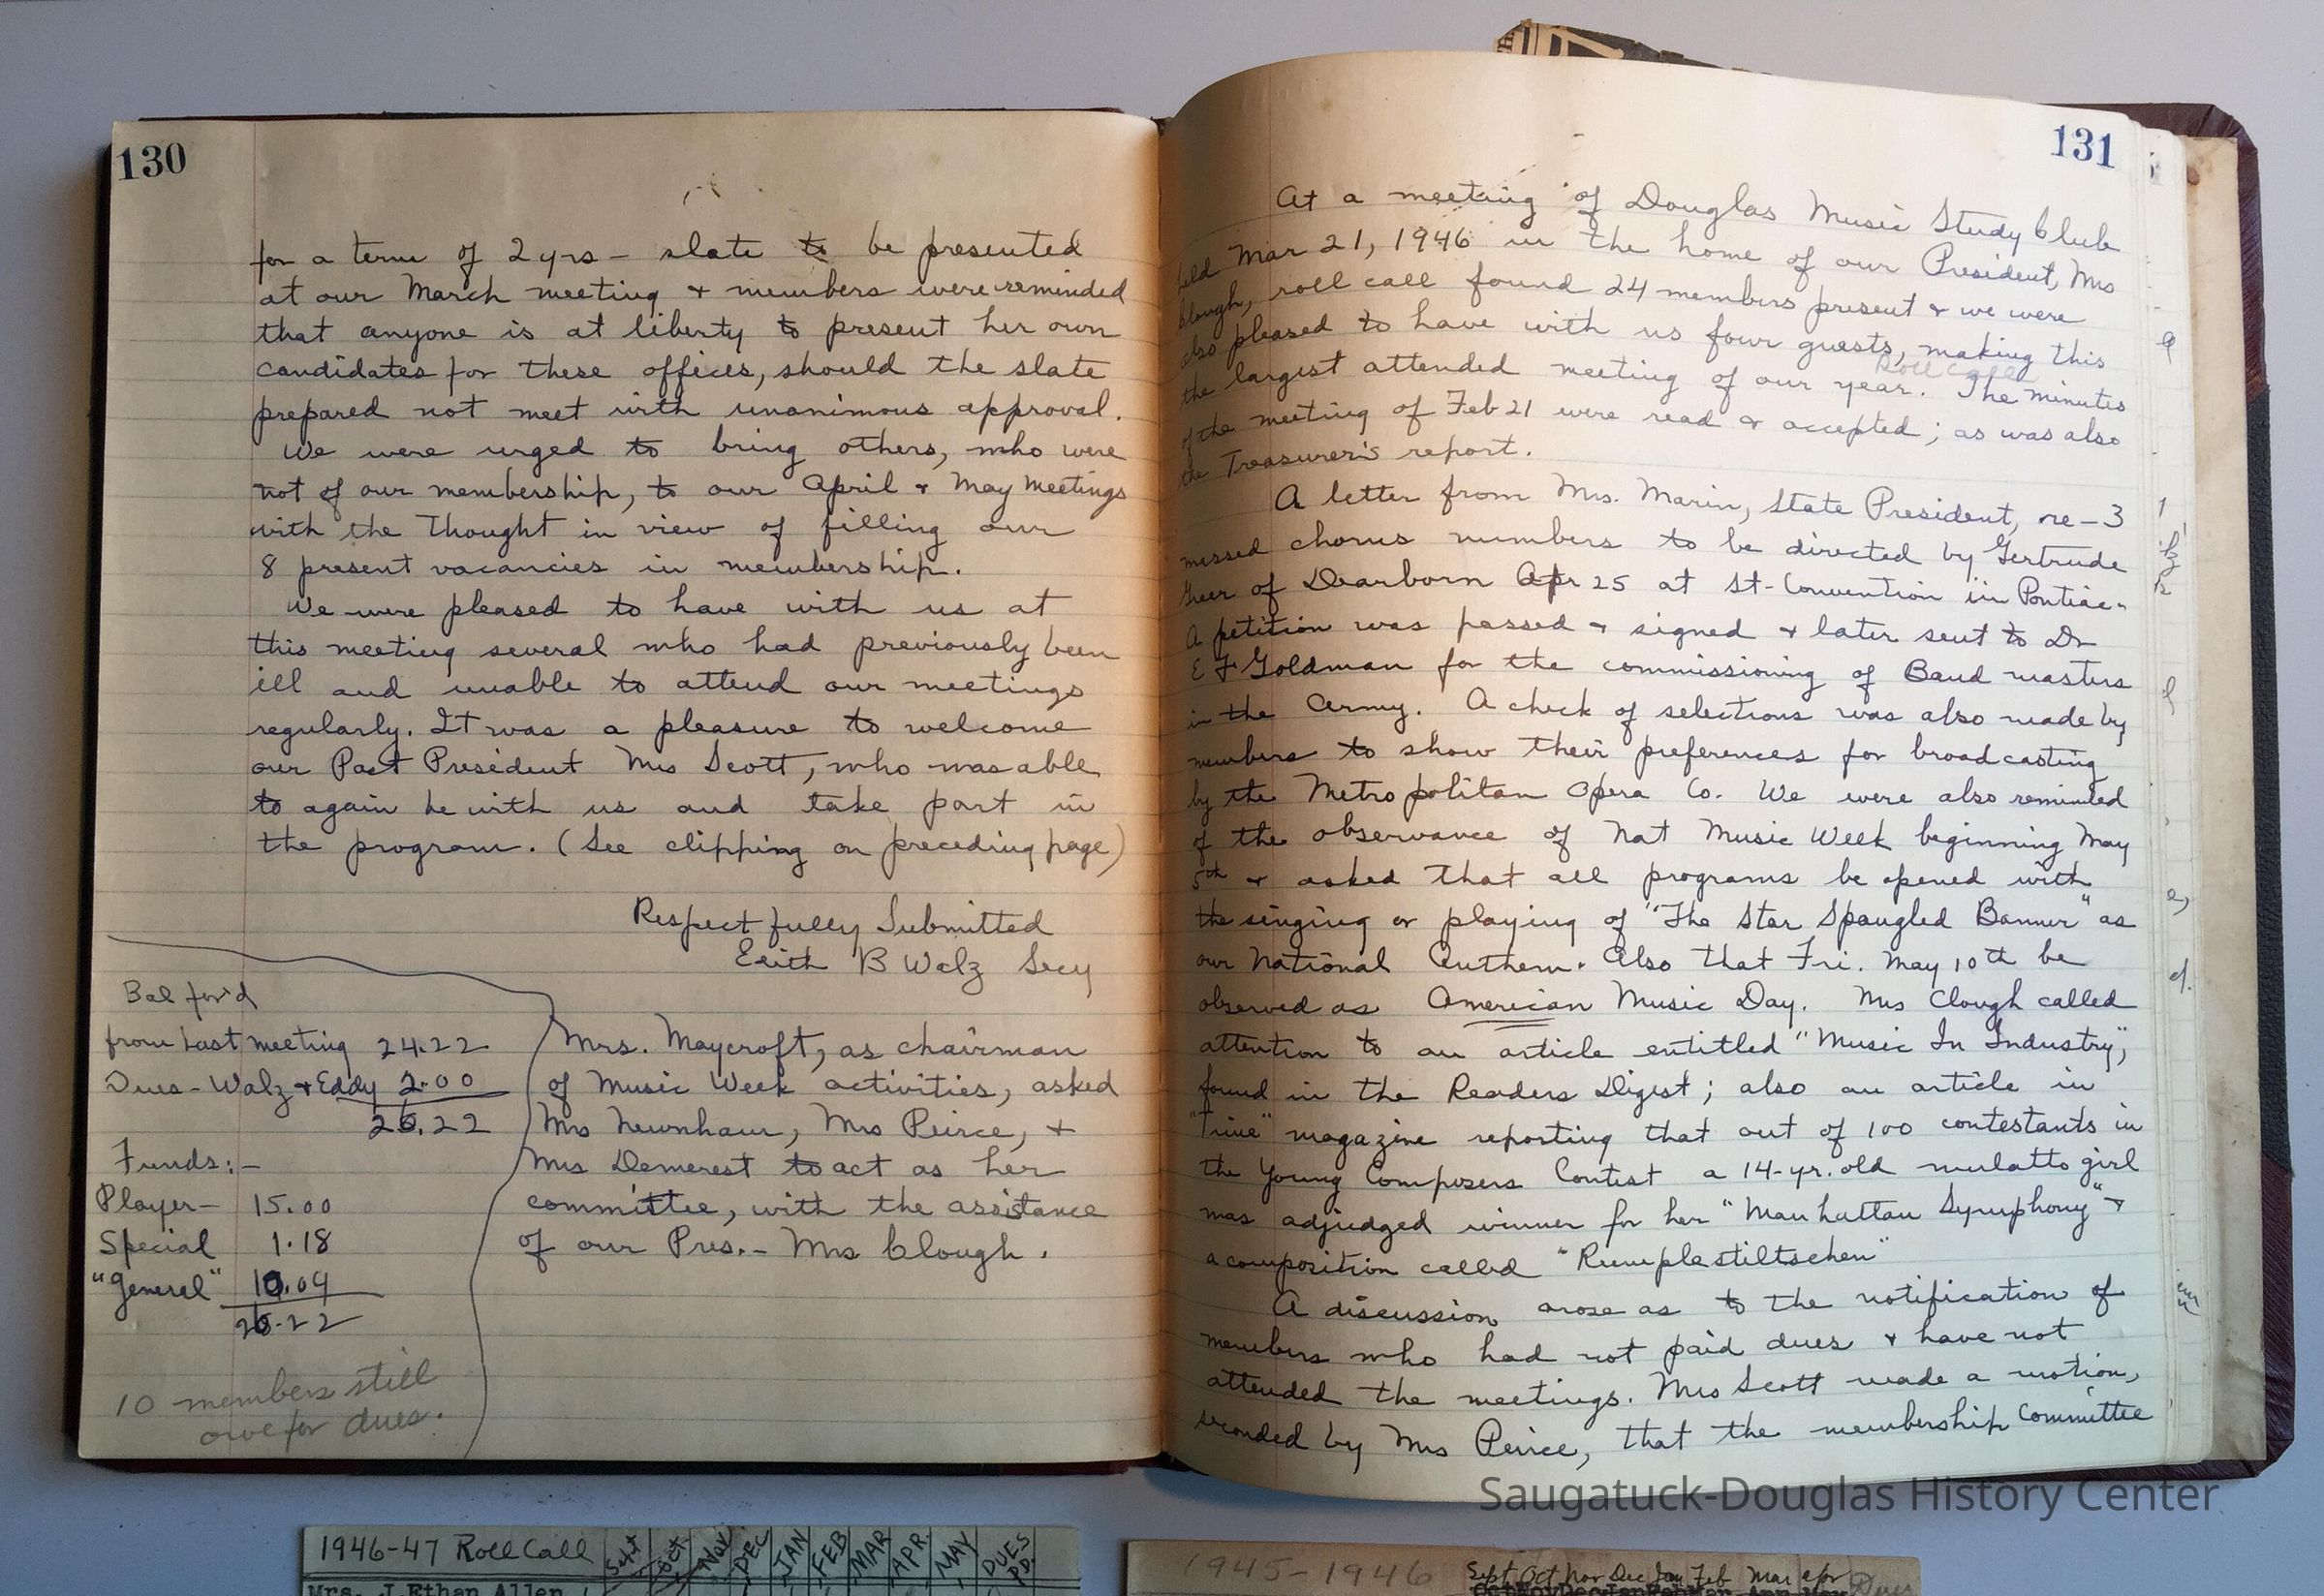 130
for a term of 2 yrs - slate to be presented
at our March meeting & members were reminded
that anyone is at liberty to present her own
candidates for these offices, should the slate
prepared not meet with unanimous approval.
We were urged to bring others, who were
not of our membership, to our April & May meetings
with the thought in view of filling our
8 present vacancies in membership.
We were pleased to have with us at
this meeting several who had previously been
ill and unable to attend our meetings
regularly. It was a pleasure to welcome
our Past President Mrs Scott, who was able
to again be with us and take part in
the program. (See clipping on preceding page)
Respectfully Submitted
Edith B Walz Secy
Bal for'd
from last meeting 24.22
Dues - Walz & Eddy 2.00
26.22
Funds:-
Player- 15.00
Special 1.18
"General" 10.04
26.22
10 members still
owe for dues.
Mrs. Maycroft, as chairman
of Music Week activities, asked
Mrs Newnham, Mrs Peirce, &
Mrs Demerest to act as her
committee, with the assistance
of our Pres.- Mrs Clough.
131
At a meeting of Douglas Music Study Club
held Mar 21, 1946 in the home of our President, Mrs
Clough, roll call found 24 members present & we were
also pleased to have with us four guests, making this
the largest attended meeting of our year. The minutes
Roll Call
of the meeting of Feb 21 were read & accepted; as was also
the Treasurer's report.
A letter from Mrs. Marin, State President, re-3
massed chorus numbers to be directed by Gertrude
Greer of Dearborn Apr 25 at St-Convention in Pontiac-
A petition was passed & signed & later sent to Dr
E F Goldman for the commissioning of Band masters
in the Army. A check of selections was also made by
members to show their preferences for broadcasting
by the Metropolitan Opera Co. We were also reminded
of the observance of Nat Music Week beginning May
5th & asked that all programs be opened with
the singing or playing of "The Star Spangled Banner" as
our National Anthem. Also that Fri. May 10th be
observed as American Music Day. Mrs Clough called
attention to an article entitled "Music In Industry",
found in the Readers Digest; also an article in
"Time" magazine reporting that out of 100 contestants in
the Young Composers Contest a 14-yr. old mulatto girl
was adjudged winner for her "Manhattan Symphony" &
a composition called "Rumplestiltschen"
A discussion arose as to the notification of
members who had not paid dues & have not
attended the meetings. Mrs Scott made a motion,
seconded by Mrs Peirce, that the membership committee
Saugatuck-Douglas History Center
1946-47 Roll Call Sept Oct Nov DEC JAN FEB MAR APR. MAY DUES PD.
Mrs. J.Ethan Allen
1945-1946 Sept Oct Nov Dec Jan Feb Mar Apr Dues